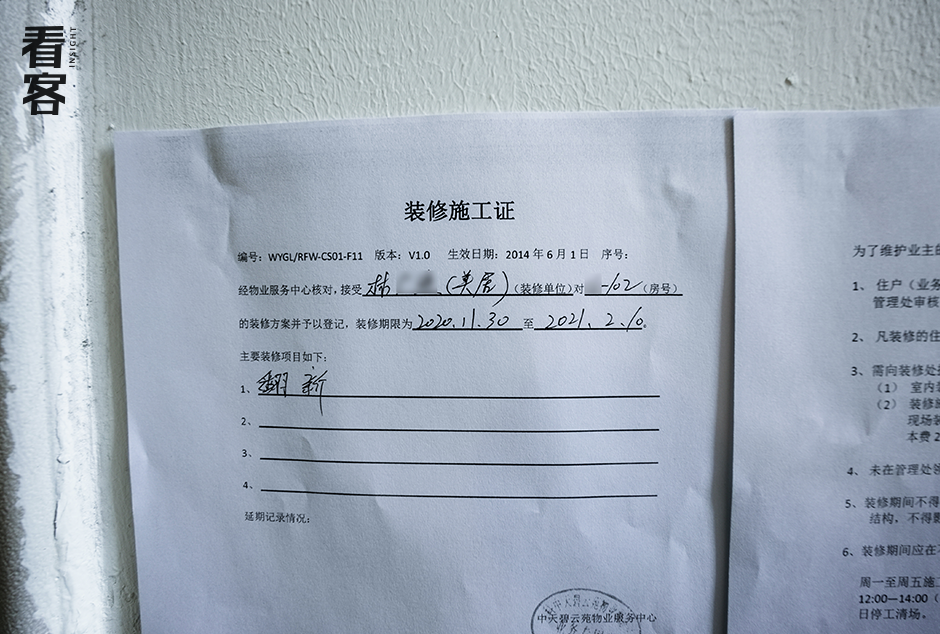 看客
INSIGHT
装修施工证
编号：WYGL/RFW-CS01-F11 版本：V1.0 生效日期：2014年6月1日 序号：
经物业服务中心核对，接受林（美居）（装修单位）对-102（房号）
的装修方案并予以登记，装修期限为2020.11.30至2021.2.10。
主要装修项目如下：
1、翻新
2、
3、
4、
延期记录情况：
中天碧云苑物业服务中心
为了维护业主的
1、住户（业务
管理处审核
2、凡装修的住
3、需向装修处
（1）室内装
（2）装修
现场装
本费2
4、未在管理处
5、装修期间不得
结构，不得
6、装修期间应在
周一至周五施工
12:00—14:00（
日停工清场。